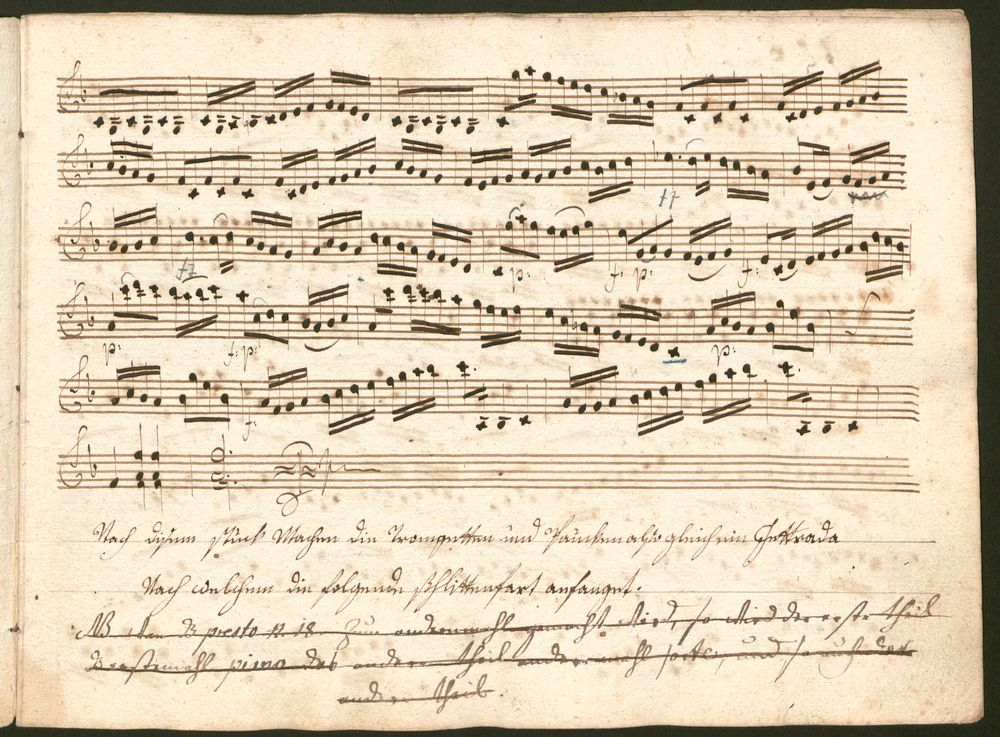 p: f: p: f:
p: f: p: p:
f:
Nach disem stuck Machen die Trompetten und Paucken also gleich ein Inttrada
Nach welchem die folgende schlittenfart anfanget.
NB Men B presto N: 18 zum andermahl gemacht Wird, so Wird der erste theil
Das erstemahl piano das andere theil andermahl forte, und so auch der
andere theil.